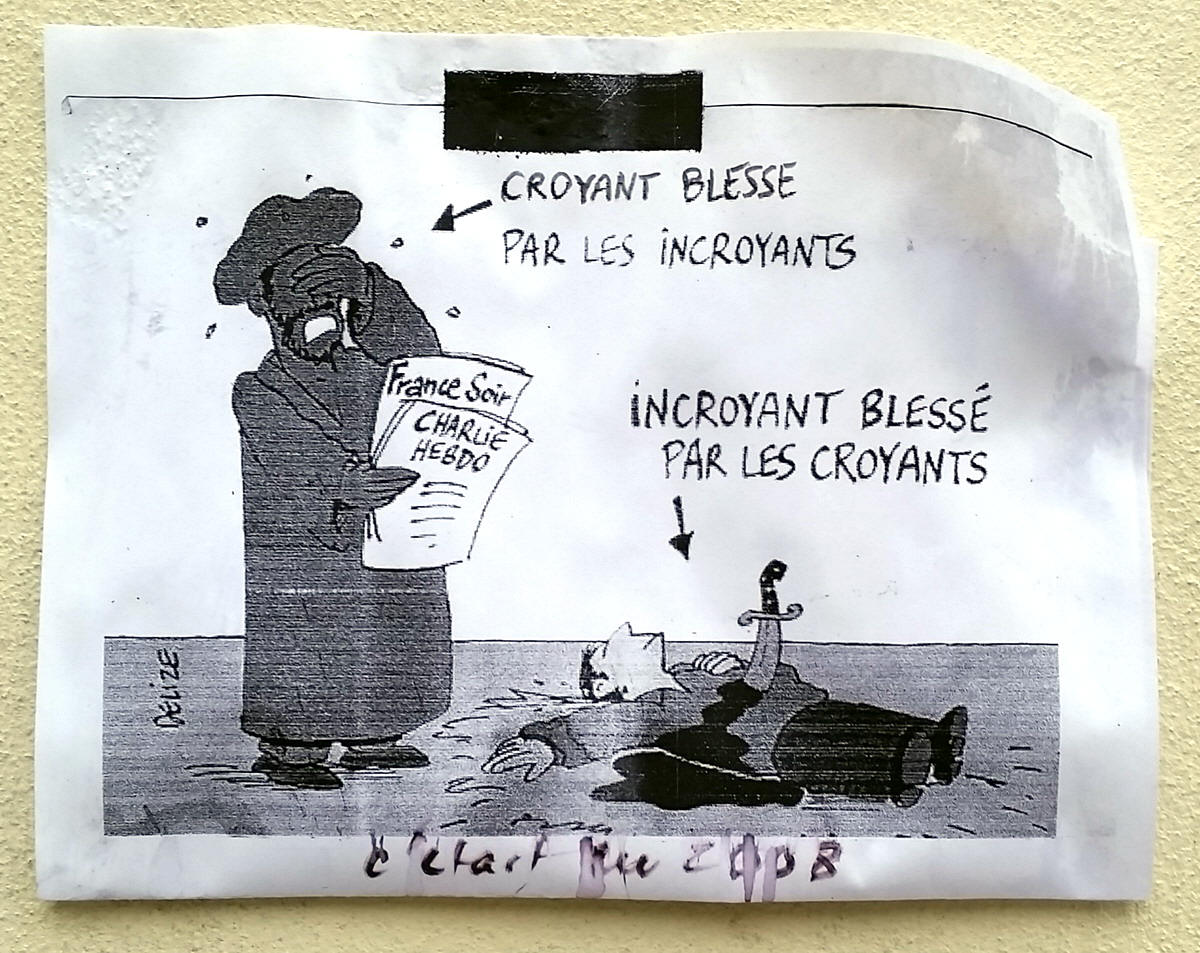 CROYANT BLESSE
PAR LES iNCROYANTS
France Soir
CHARLiE
HEBDO
iNCROYANT BLESSÉ
PAR LES CROYANTS
DELiZE
c'était 2008